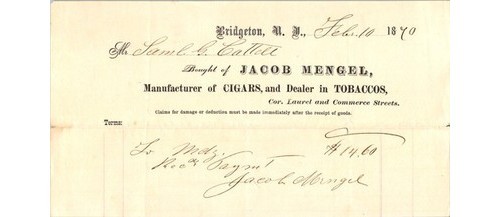 Bridgeton, N. J., Feb. 10 1870
Mr Saml. G. Cattell
Bought of JACOB MENGEL,
Manufacturer of CIGARS, and Dealer in TOBACCOS,
Cor. Laurel and Commerce Streets.
Claims for damage or deduction must be made immediately after the receipt of goods.
Terms:
To Mdz. $14.60
Rec'd Paymt
Jacob Mengel